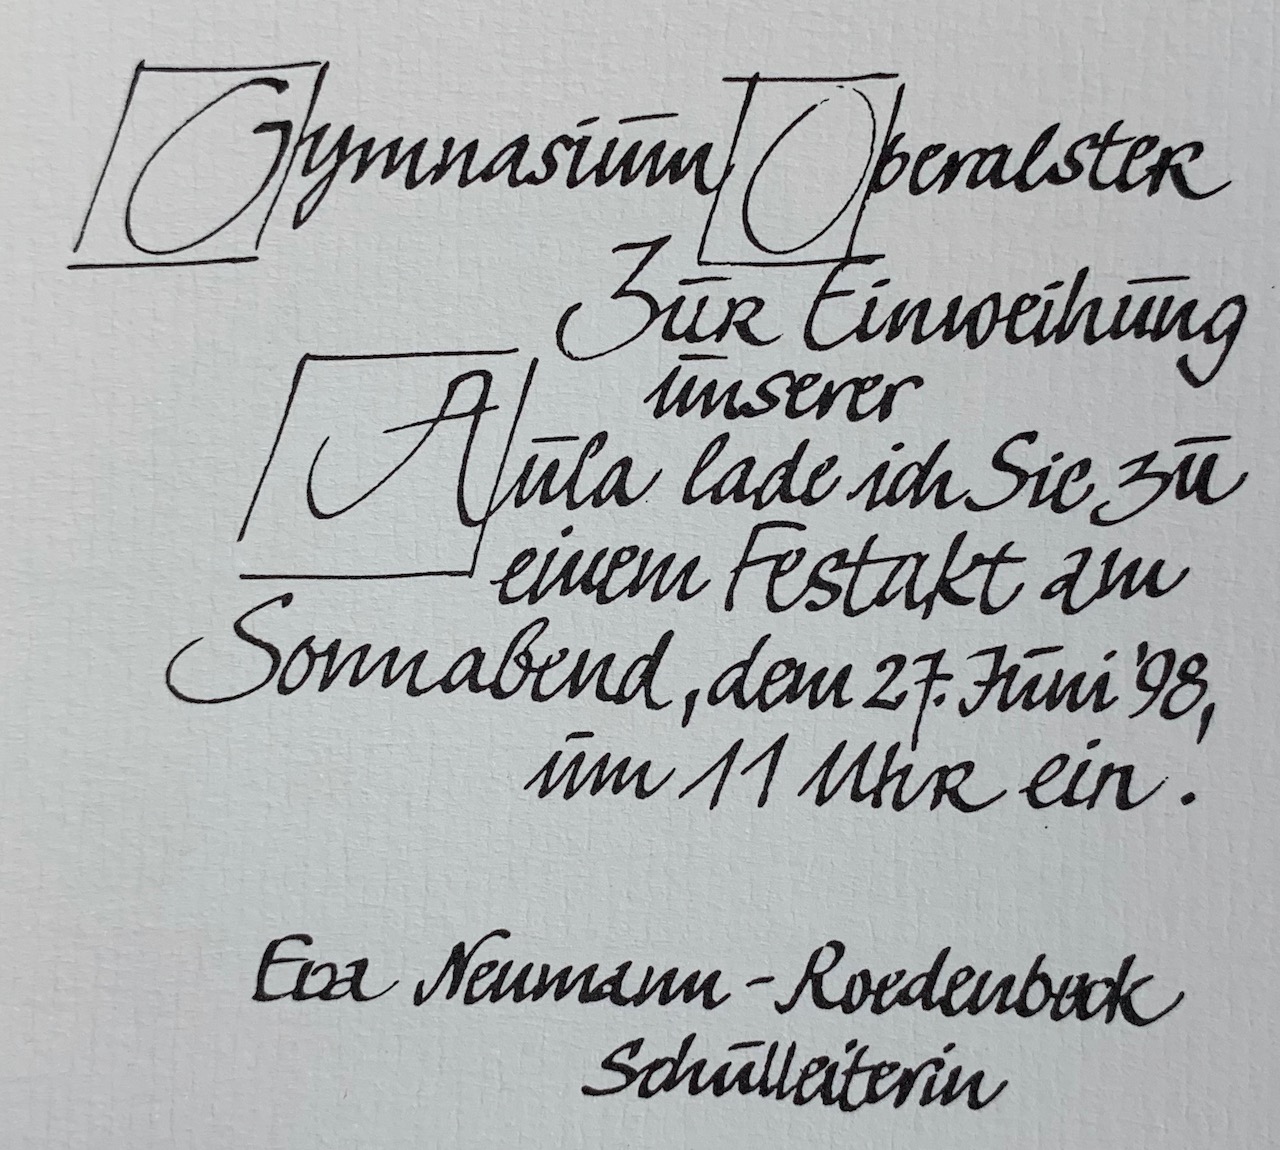 Gymnasium Oberalster
Zur Einweihung
unserer
Aula lade ich Sie zu
einem Festakt am
Sonnabend, dem 27. Juni '98,
um 11 Uhr ein.
Eva Neumann - Roedenbeck
Schulleiterin